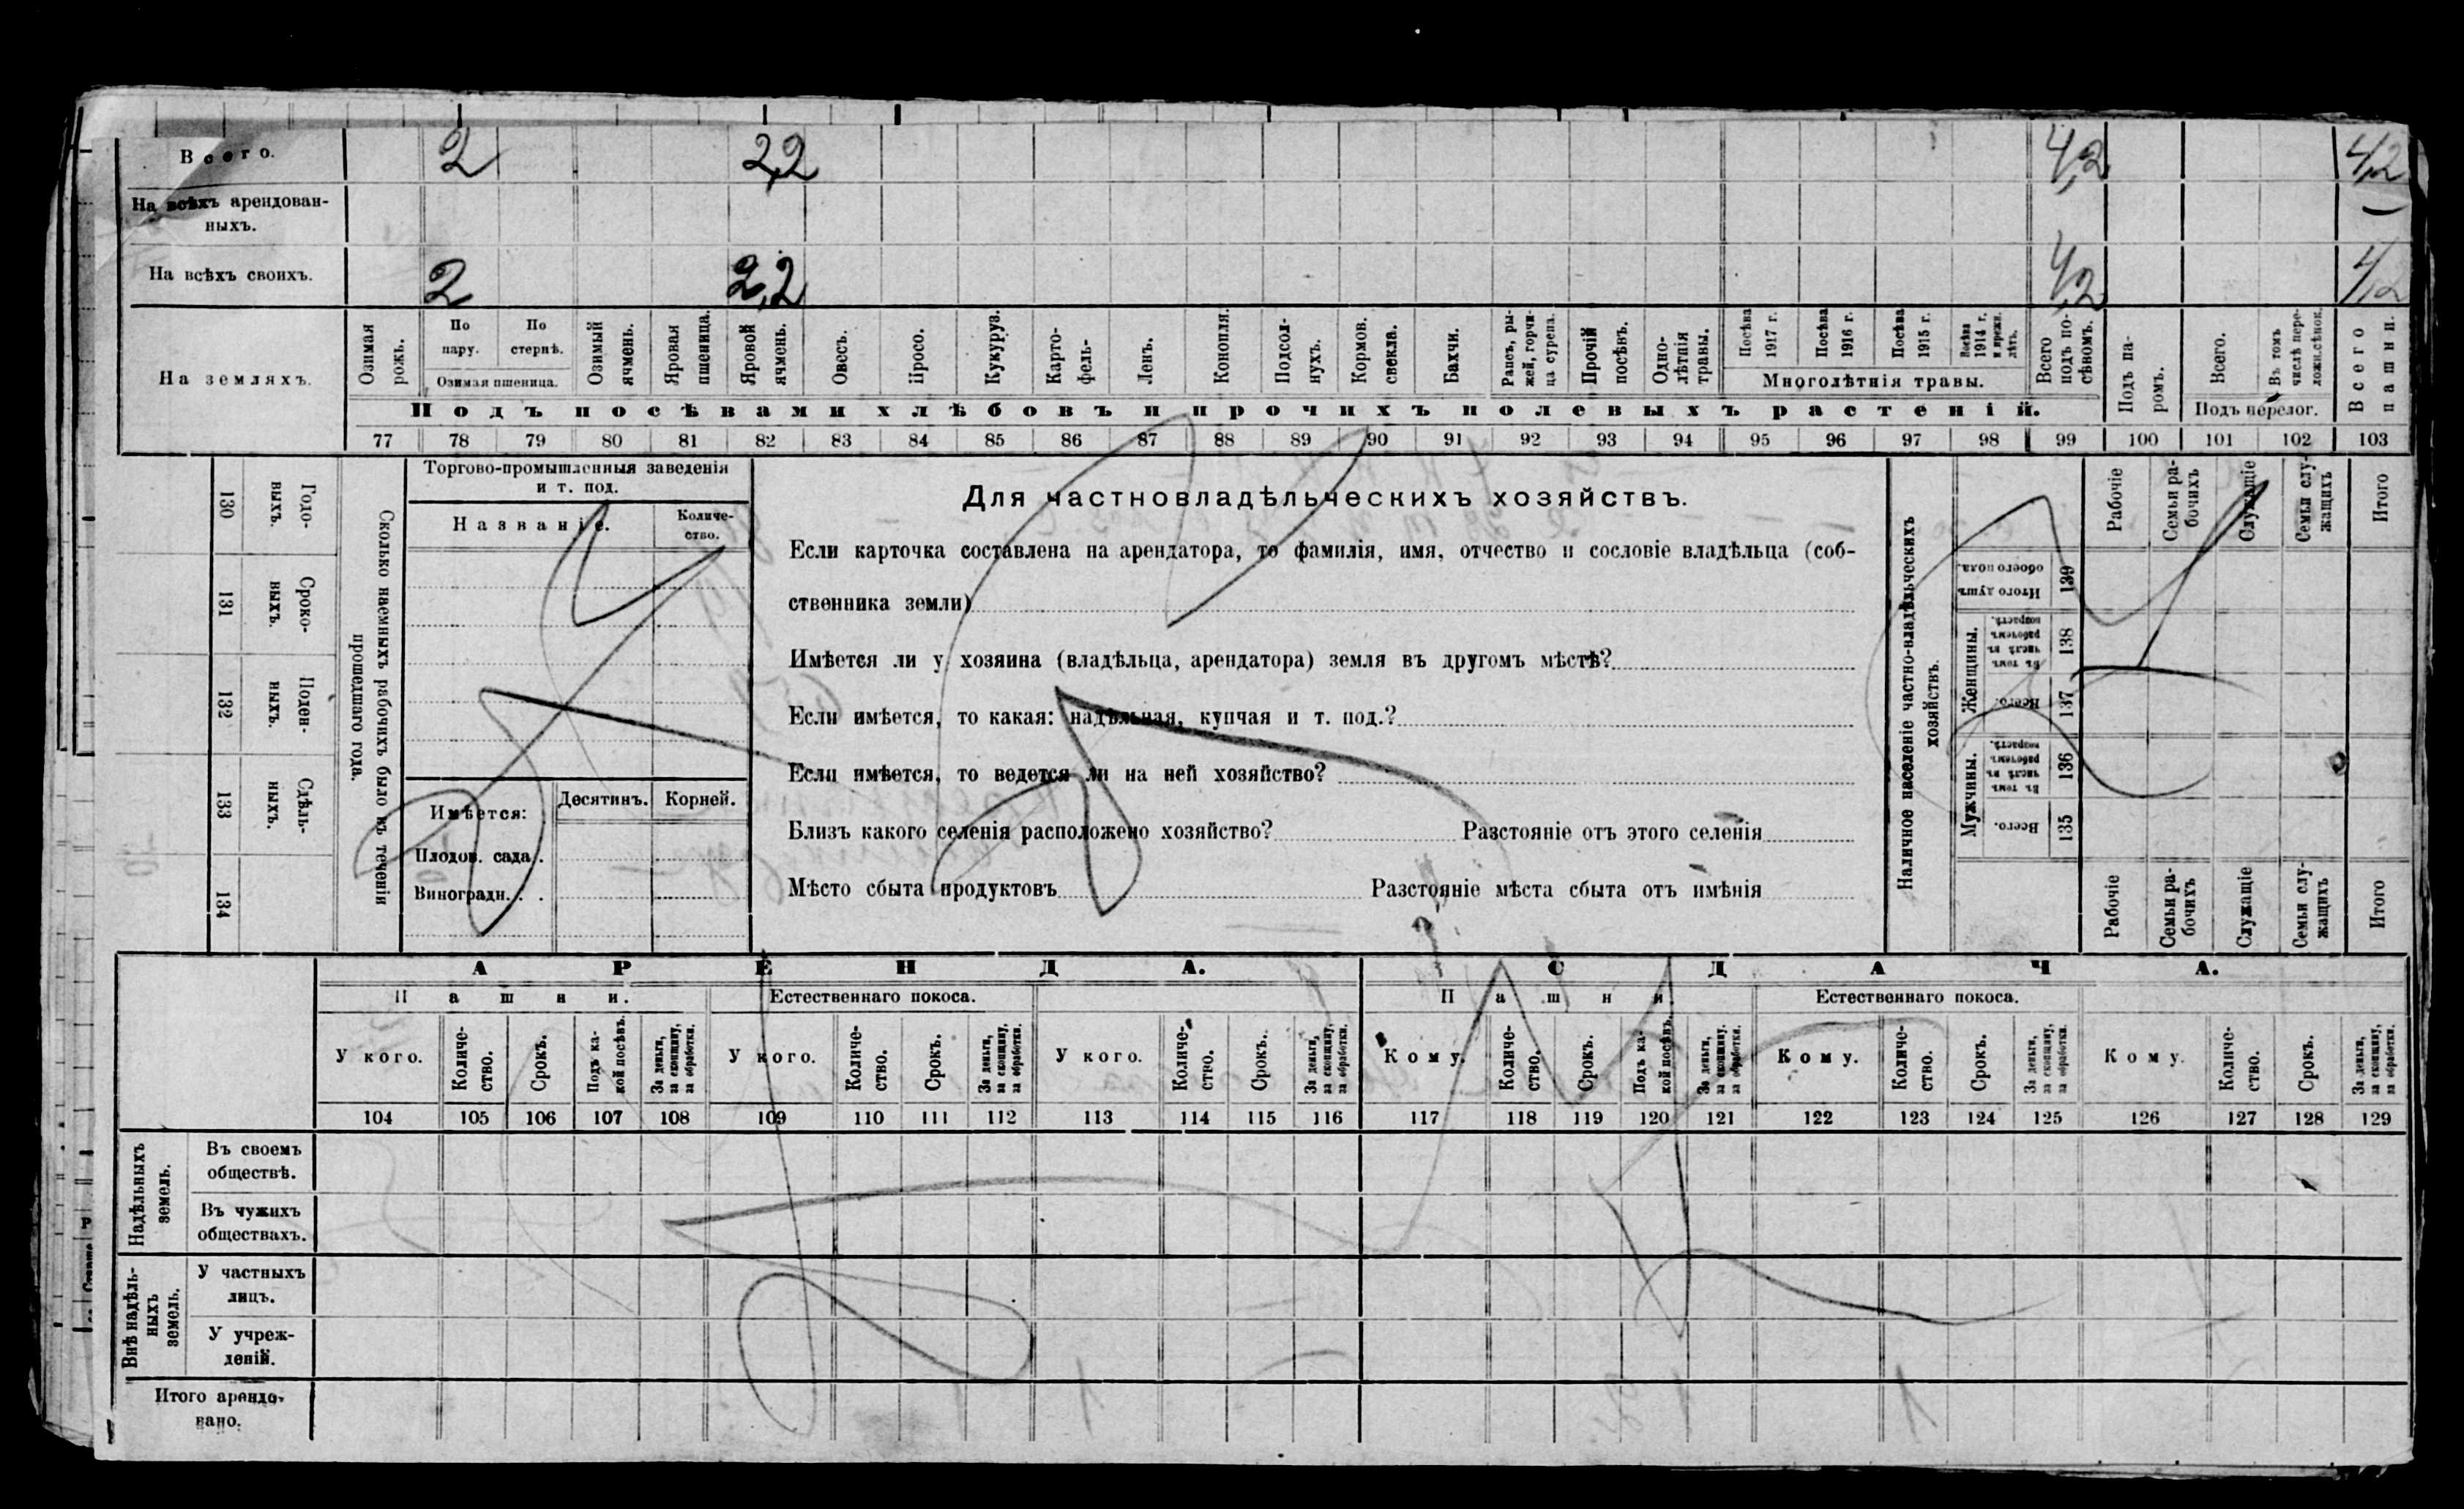 Всего. 2 2,2 4,2 4,2
На всѣхъ арендован-
ныхъ. —
На всѣхъ своихъ. 2 2,2 4,2 4,2
На земляхъ.
Озимая рожь.
По пару.
По стернѣ.
Озимая пшеница.
Озимый ячмень.
Яровая пшеница.
Яровой ячмень.
Овесъ.
Просо.
Кукуруз.
Карто-
фель-
Ленъ.
Конопля.
Подсол-
нухъ.
Кормов. свекла.
Бахчи.
Рапсъ, ры-
жей, горчи-
ца сурепа.
Прочій посѣвъ.
Одно-
лѣтнія травы.
Посѣва 1917 г.
Посѣва 1916 г.
Посѣва 1915 г.
Посѣва 1914 г. и прежн. лѣтъ.
Многолѣтнія травы.
Всего подъ по-
сѣвомъ.
Подъ па-
ромъ.
Всего.
Въ томъ числѣ пере-
ложн.сѣнок.
Подъ перелог.
Всего пашни.
Подъ посѣвами хлѣбовъ и прочихъ полевыхъ растеній.
77 78 79 80 81 82 83 84 85 86 87 88 89 90 91 92 93 94 95 96 97 98 99 100 101 102 103
Сколько наемныхъ рабочихъ было въ теченіи
прошедшаго года.
Годо-
выхъ.
130
Сроко-
ныхъ.
131
Поден-
ныхъ.
132
Сдѣль-
ныхъ.
133
134
Торгово-промышленныя заведенія
и т. под.
Названіе.
Количе-
ство.
Имѣется:
Десятинъ.
Корней.
Плодов. сада. .
Виноградн. . .
Для частновладѣльческихъ хозяйствъ.
Если карточка составлена на арендатора, то фамилія, имя, отчество и сословіе владѣльца (соб-
ственника земли)
Имѣется ли у хозяина (владѣльца, арендатора) земля въ другомъ мѣстѣ?
Если имѣется, то какая: надѣльная, купчая и т. под.?
Если имѣется, то ведется ли на ней хозяйство?
Близъ какого селенія расположено хозяйство? Разстояніе отъ этого селенія
Мѣсто сбыта продуктовъ Разстояніе мѣста сбыта отъ имѣнія
Наличное населеніе частно-владѣльческихъ
хозяйствъ.
Рабочіе
Семьи ра-
бочихъ
Служащіе
Семьи слу-
жащихъ
Итого
Итого душъ
обоего пола.
139
Женщины.
Въ томъ числѣ въ рабочемъ возрастѣ.
138
Всего.
137
Мужчины.
Въ томъ числѣ въ рабочемъ возрастѣ.
136
Всего.
135
Рабочіе
Семьи ра-
бочихъ
Служащіе
Семьи слу-
жащихъ
Итого
АРЕНДА. СДАЧА.
Пашни. Естественнаго покоса. Пашни. Естественнаго покоса.
У кого.
Количе-
ство.
Срокъ.
Подъ ка-
кой посѣвъ.
За деньги,
за скопщину,
за обработки.
У кого.
Количе-
ство.
Срокъ.
За деньги,
за скопщину,
за обработки.
У кого.
Количе-
ство.
Срокъ.
За деньги,
за скопщину,
за обработки.
Кому.
Количе-
ство.
Срокъ.
Подъ ка-
кой посѣвъ.
За деньги,
за скопщину.
за обработки.
Кому.
Количе-
ство.
Срокъ.
За деньги,
за скопщину,
за обработки.
Кому.
Количе-
ство.
Срокъ.
За деньги,
за скопщину,
за обработки.
104 105 106 107 108 109 110 111 112 113 114 115 116 117 118 119 120 121 122 123 124 125 126 127 128 129
Надѣльныхъ
земель.
Въ своемъ
обществѣ.
Въ чужихъ
обществахъ.
Внѣ надѣль-
ныхъ
земель.
У частныхъ
лицъ.
У учреж-
деній.
Итого арендо-
вано.